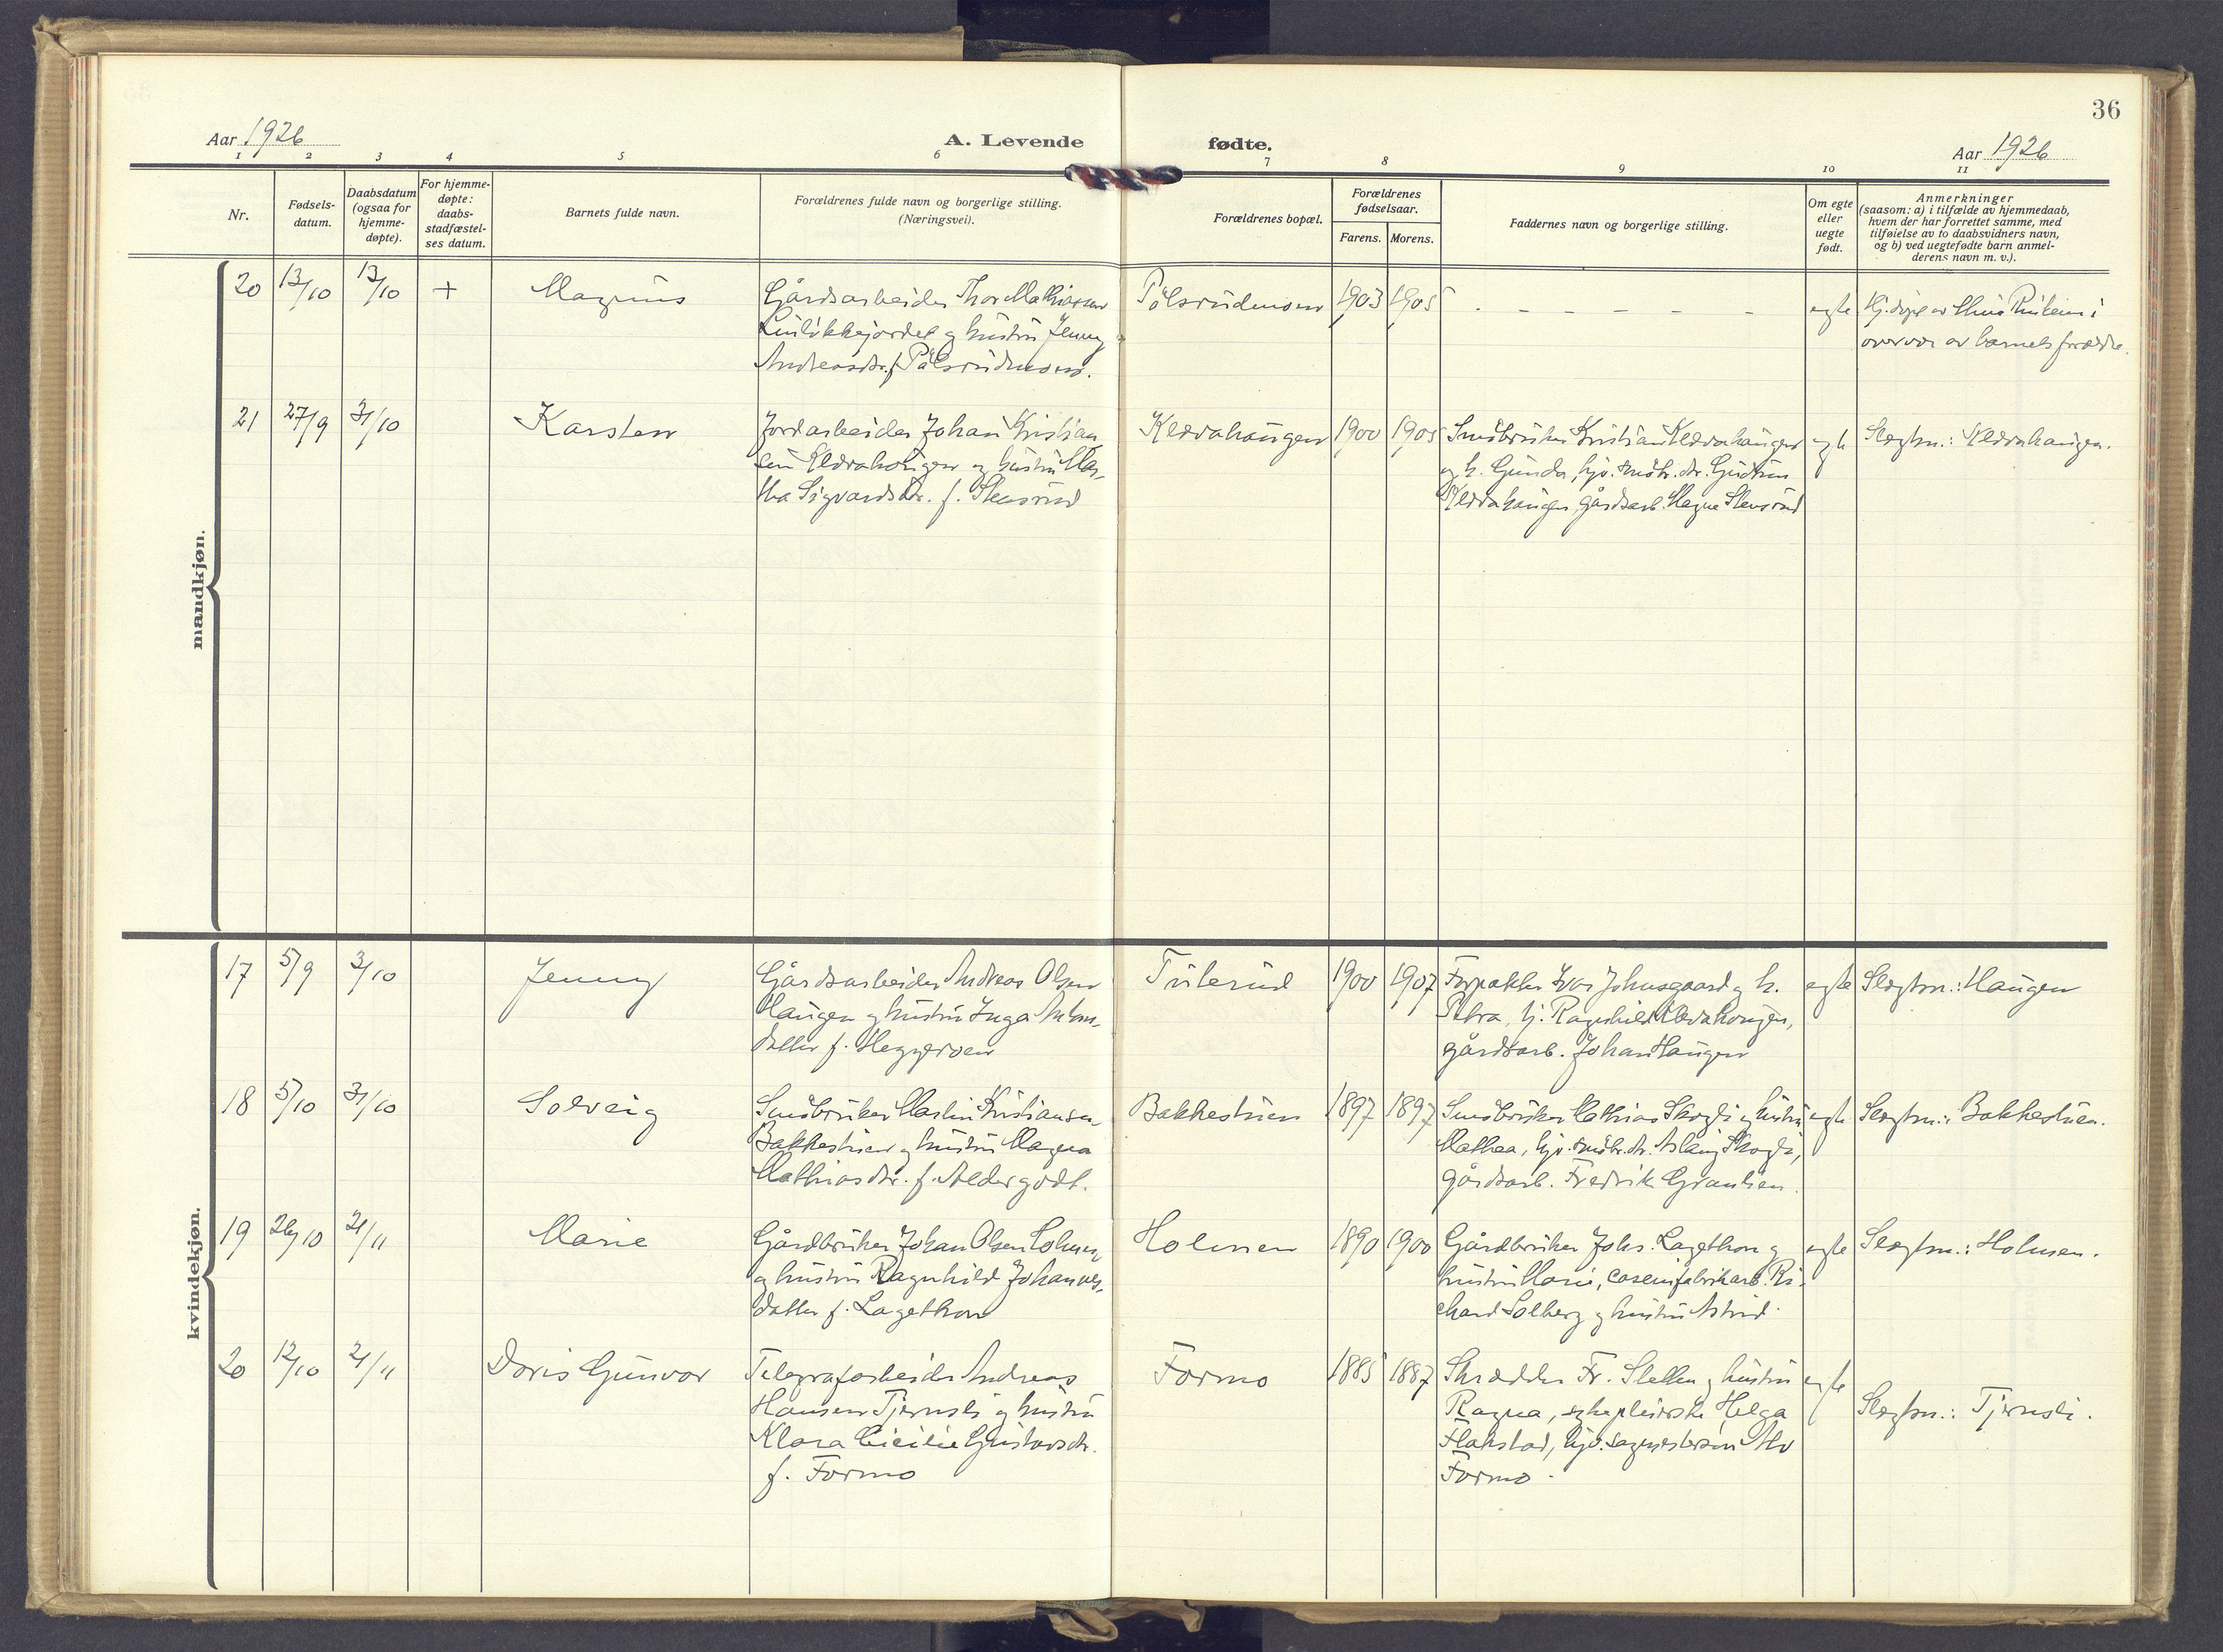 36
Aar 1926
A. Levende fødte.
Aar 1926
1 2 3 4 5 6 7 8 9 10 11
Nr.
Fødsels-
datum.
Daabsdatum
(ogsaa for
hjemme-
døpte).
For hjemme-
døpte:
daabs-
stadfæstel-
ses datum.
Barnets fulde navn.
Forældrenes fulde navn og borgerlige stilling.
(Næringsvei).
Forældrenes bopæl.
Forældrenes
fødselsaar.
Farens. Morens.
Faddernes navn og borgerlige stilling.
Om egte
eller
uegte
født.
Anmerkninger
(saasom: a) i tilfælde av hjemmedaab,
hvem der har forrettet samme, med
tilføielse av to daabsvidners navn,
og b) ved uegtefødte barn anmel-
derens navn m. v.).
mandkjøn.
20 13/10 13/10 + Magnus
Gårdsarbeider Thor Mathiassen
og hustru Jenny
Andreasdr. f. Pålsrudmoen.
Pålsrudmoen 1903 1905 - - - - - - egte
Hj. døpt av i
overvær av barnets forældre.
21 27/9 31/10 Karsten
Jordarbeider Johan Kristian-
sen Klævahaugen og hustru Mar-
tha Sigvardsdr. f. Stensrud
Klævahaugen 1900 1905
Småbruker Kristian Klævahaugen
og h. Gunda, hjv. småbr. dr. Gudrun
Klævahaugen, gårdsarb. Magne Stensrud
egte
Slegtsn.: Klævahaugen.
kvindekjøn.
17 5/9 3/10 Jenny
Gårdsarbeider Andreas Olsen
Haugen og hustru Inga Anton-
datter f. Heggerøen
1900 1907
Forpakter Ivar Johnsgaard og h.
Petra, hj. Ragnhild Klævahaugen,
gårdsarb. Johan Haugen
egte
Slegtsn.: Haugen
18 5/10 31/10 Solveig
Småbruker Martin Kristiansen
Bakkestuen og hustru Magna
Mathiasdr. f. Aldergodt.
Bakkestuen 1897 1897
Småbruker Mathias Skogli og hustru
Mathea, hjv. småbr. dr. Aslaug Skogli,
gårdsarb. Fredrik Granlien.
egte
Slegtsn.: Bakkestuen.
19 26/10 21/11 Marie
Gårdbruker Johan Olsen Holmen
og hustru Ragnhild Johannes-
datter f. Lagethon
Holmen 1890 1900
Gårdbruker Johs. Lagethon og
hustru Marie, caseinfabrikarb. Ri-
chard Solberg og hustru Astrid.
egte
Slegtsn.: Holmen.
20 12/10 21/11 Doris Gunvor
Telegrafarbeider Andreas
Hansen Tjernsli og hustru
Klara Cicilie Gustavsdr.
f. Formo
Formo 1885 1887
Skrædder Fr. Sletten og hustru
Ragna, sykepleierske Helga
Flakstad, hjv. sagmestersøn Alv
Formo.
egte
Slegtsn.: Tjernsli.